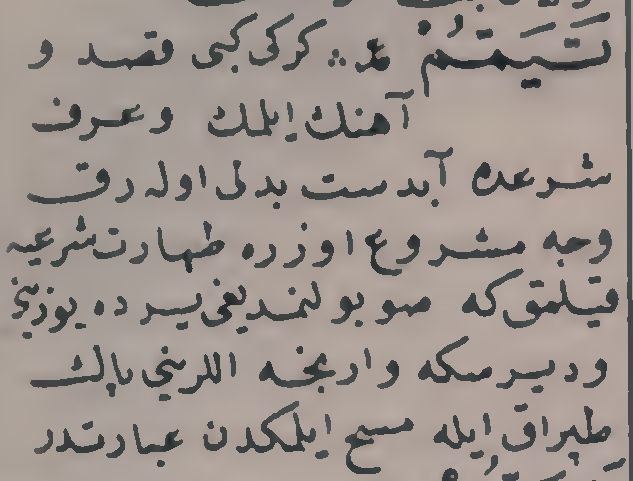 تَيَمُّمْ عر ∴ كركى كبى قصد و
آهنك ايلمك وعرف
شرعده آبدست بدلى اوله رق
وجه مشروع اوزره طهارت شرعيه
قيلمق كه صو بولنمديغى يرده يوزينى
وديرسكه وارنجه اللرينى پاك
طپراق ايله مسح ايلمكدن عبارتدر